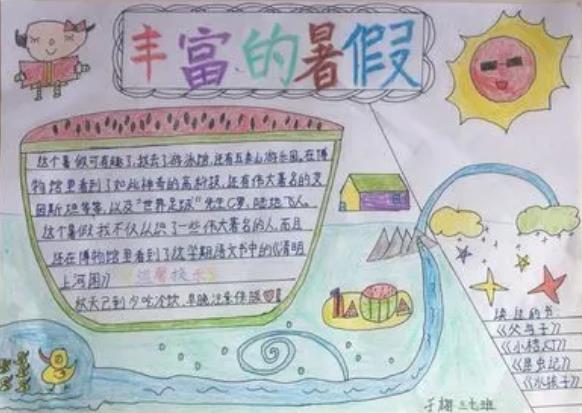 丰富的暑假
这个暑假可有趣了,我去了游泳馆,还有五泉山游乐园,在博
物馆里看到了如此神奇的高科技,还有伟大著名的爱
因斯坦等等,以及"世界足球"先生C罗,陆地飞人。
这个暑假我不仅认识了一些伟大著名的人,而且
还在博物馆里看到了这学期语文书中的《清明
上河图》
温馨提示
秋天已到少吃冷饮,早晚注意保暖
读过的书
《父与子》
《小桔灯》
《昆虫记》
《水孩子》
三七班